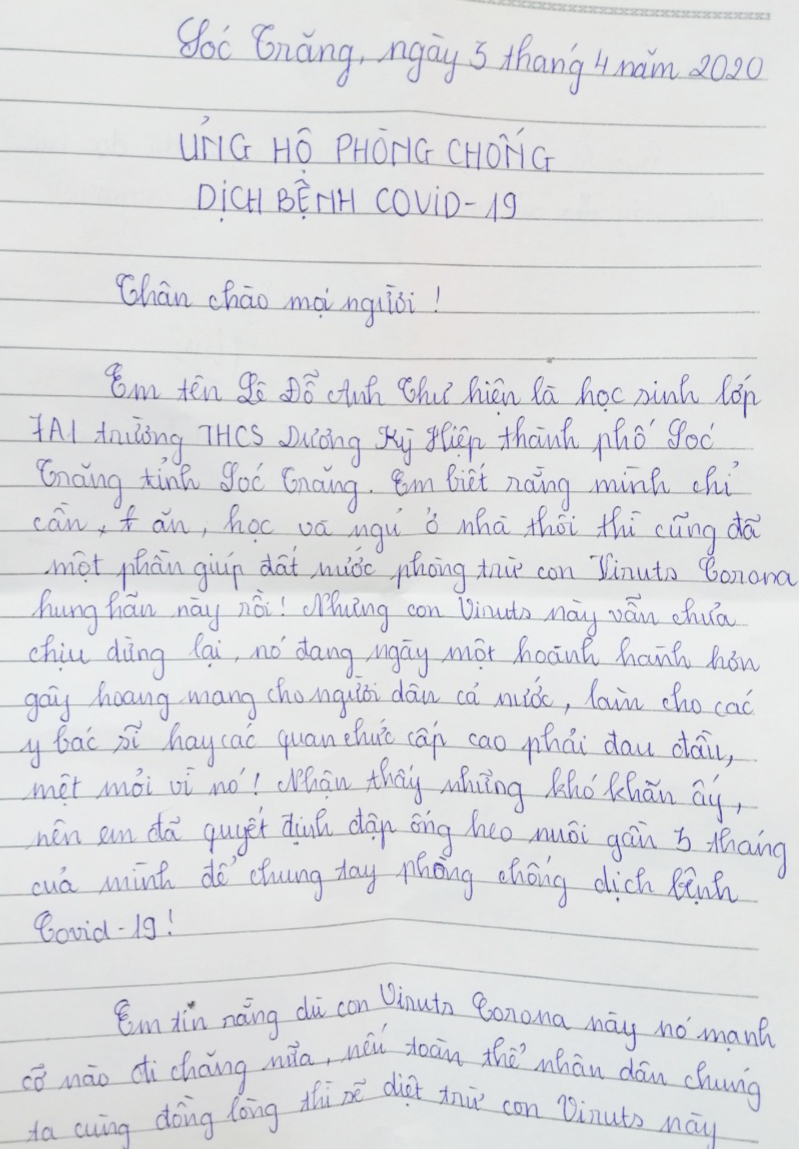 Sóc Trăng, ngày 3 tháng 4 năm 2020
ỦNG HỘ PHÒNG CHỐNG
DỊCH BỆNH COVID-19
Thân chào mọi người!
Em tên Lê Đỗ Anh Thư hiện là học sinh lớp
7A1 trường THCS Dương Kỳ Hiệp thành phố Sóc
Trăng tỉnh Sóc Trăng. Em biết rằng mình chỉ
cần, ăn, học và ngủ ở nhà thôi thì cũng đã
một phần giúp đất nước phòng trừ con Viruts Corona
hung hãn này rồi! Nhưng con Viruts này vẫn chưa
chịu dừng lại, nó đang ngày một hoành hành hơn
gây hoang mang cho người dân cả nước, làm cho các
y bác sĩ hay các quan chức cấp cao phải đau đầu,
mệt mỏi vì nó! Nhận thấy những khó khăn ấy,
nên em đã quyết định đập ống heo nuôi gần 3 tháng
của mình để chung tay phòng chống dịch bệnh
Covid-19!
Em tin rằng dù con Viruts Corona này nó mạnh
cỡ nào đi chăng nữa, nếu toàn thể nhân dân chúng
ta cùng đồng lòng thì sẽ diệt trừ con Viruts này